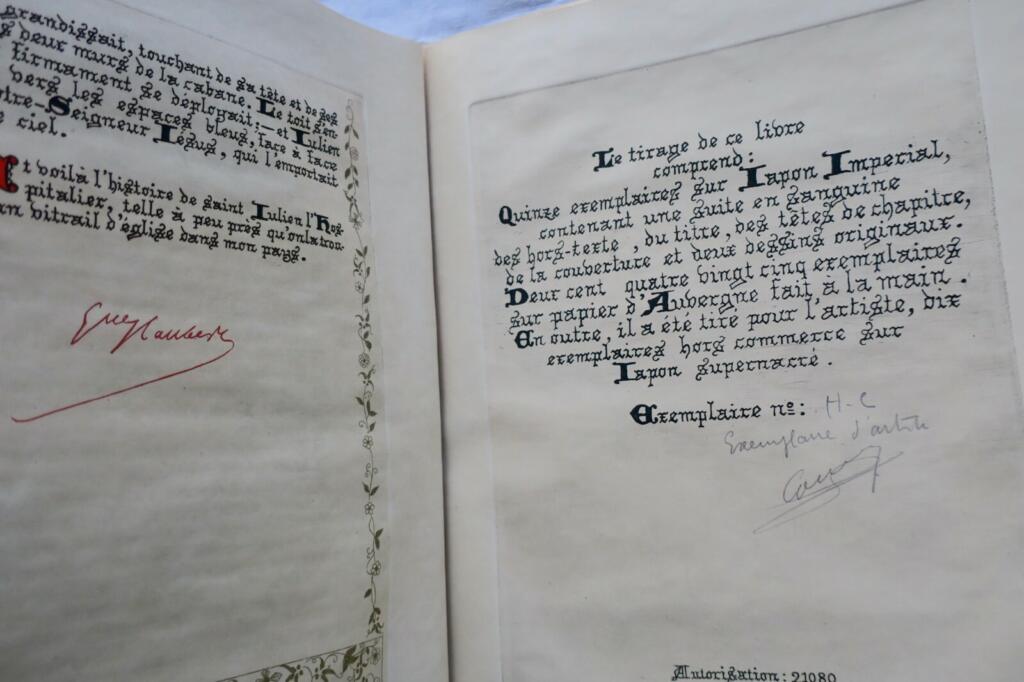 grandissait, touchant de sa tête et de ses
s deux murs de la cabane. Le toit s'en
firmament se déployait; — et Iulien
vers les espaces bleus, face à face
tre-Seigneur Iésus, qui l'emportait
e ciel.
Et voilà l'histoire de saint Iulien l'Hos-
pitalier, telle à peu près qu'on la trou-
un vitrail d'église dans mon pays.
Gve Flaubert
Le tirage de ce livre
comprend:
Quinze exemplaires sur Iapon Imperial,
contenant une suite en sanguine
des hors-texte, du titre, des têtes de chapitre,
de la couverture et deux dessins originaux.
Deux cent quatre vingt cinq exemplaires
sur papier d'Auvergne fait, à la main.
En outre, il a été tiré pour l'artiste, dix
exemplaires hors commerce sur
Iapon supernacré.
Exemplaire nº: H-C
Exemplaire d'artiste
Autorisation: 21080